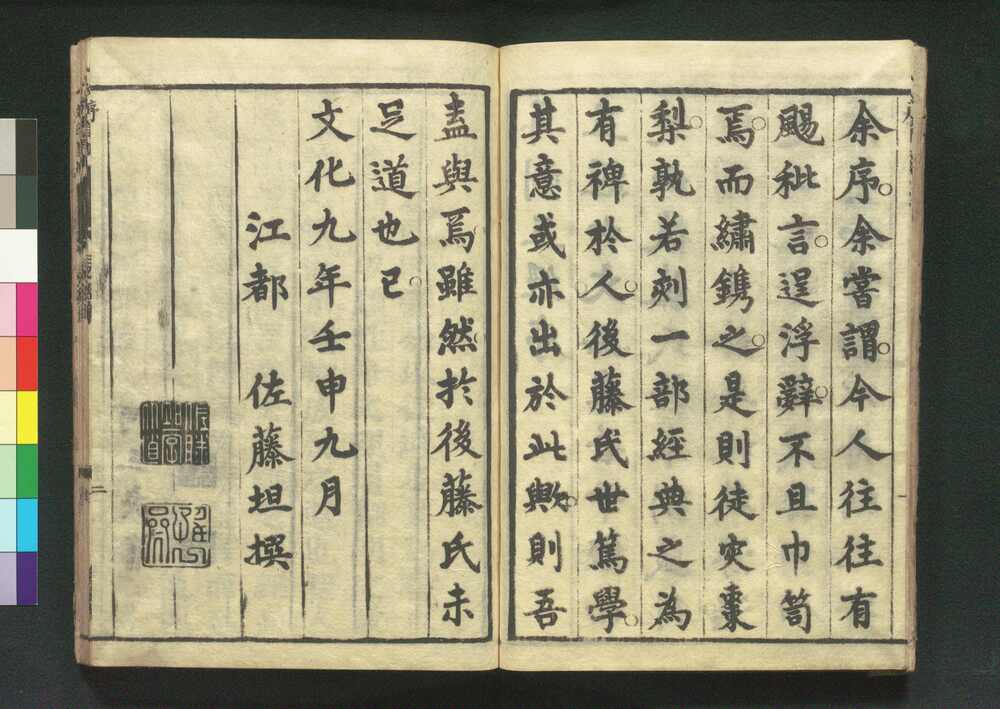 余序。余嘗謂。今人往往有
颺秕言。逞浮辭。不且巾笥
焉。而繡鐫之。是則徒突棗
梨。孰若刻一部經典之為
有裨於人。後藤氏世篤學。
其意或亦出於此歟。則吾
盍與焉。雖然。於後藤氏未
足道也已。
文化九年壬申九月
江都 佐藤坦撰
序
二